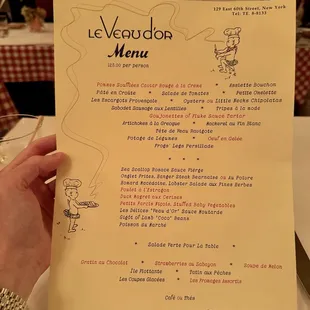 129 East 60th Street, New York
Tel. TE 8-8133
Le Veau d'Or
Menu
125.00 per person
Pommes Soufflées Caviar Rouge à la Crème * Assiette Bouchon
Pâté en Croûte * Salade de Tomates * Petite Omelette
Les Escargots Provençale * Oysters ou Little Necks Chipolatas
Sabodet Sausage aux Lentilles * Frisée à la mode
Goujonettes of Fluke Sauce Tartar
Artichokes à la Grecque * Mackerel au Vin Blanc
Tête de Veau Ravigote
Potage de Légumes * Oeuf en Gelée
Frogs' legs Persillade
* * *
Sea Scallop Rosace Sauce Vierge
Onglet Frites, Hanger Steak Bearnaise ou au Poivre
Homard Macédoine, Lobster Salade aux Fines Herbes
Poulet à l'Estragon
Duck Magret aux Cerises
Petits Farcis Niçois, Stuffed Baby Vegetables
Les Délices "Veau d'Or" Sauce Moutarde
Gigôt of Lamb "Coco" Beans
Poisson du Marché
* Salade Verte Pour La Table *
Gratin au Chocolat * Strawberries au Sabayon * Soupe de Melon
Île Flottante * Tatin aux Pêches
Les Coupes Glacées * Les Fromages Assortis
Café ou Thés